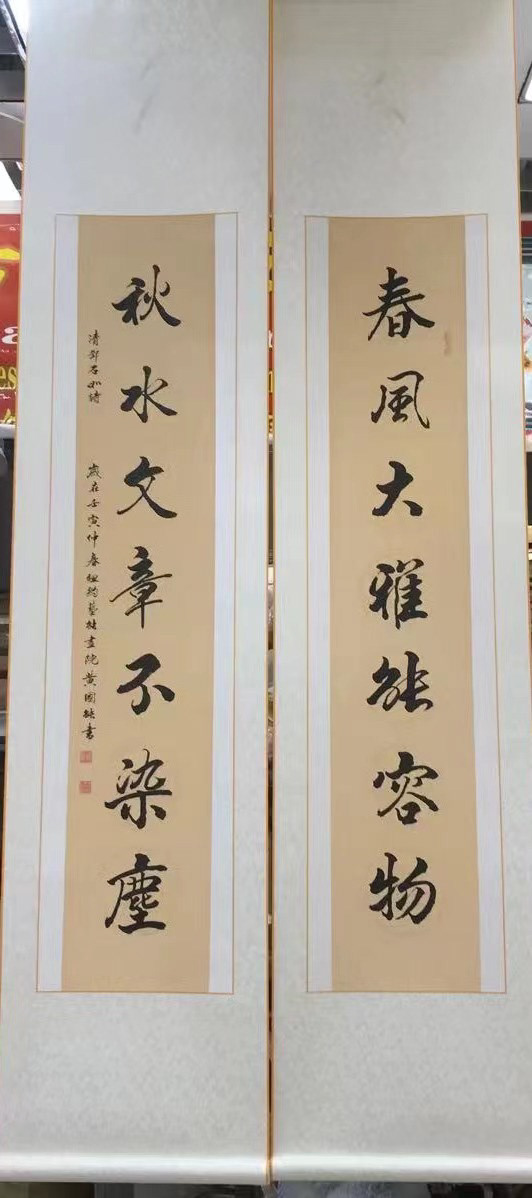 春風大雅能容物
秋水文章不染塵
清鄧石如詩
歲在壬寅仲春紐約藝林畫院黃國能書